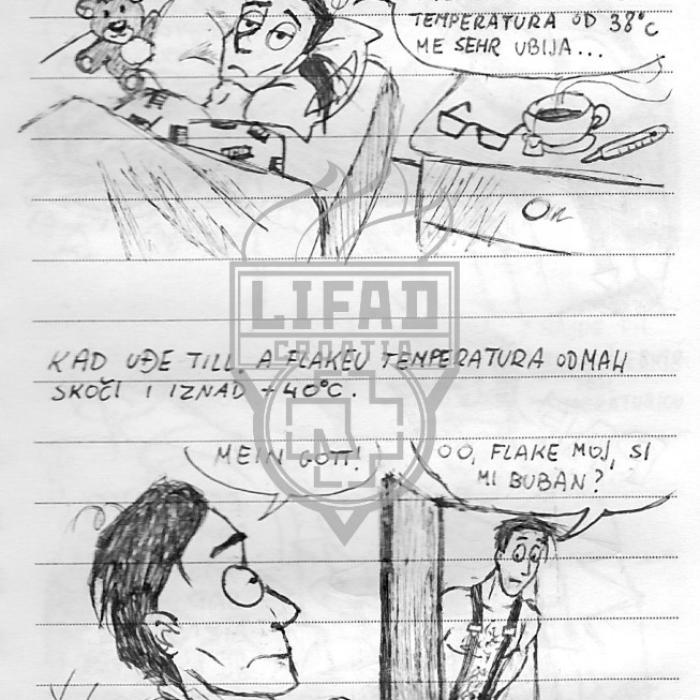 TEMPERATURA OD 38°C
ME SEHR UBIJA...
LIFAD
CROATIA
KAD UĐE TILL, A FLAKEU TEMPERATURA ODMAH
SKOČI I IZNAD +40°C.
MEIN GOTT!
OO, FLAKE MOJ, SI
MI BUBAN?